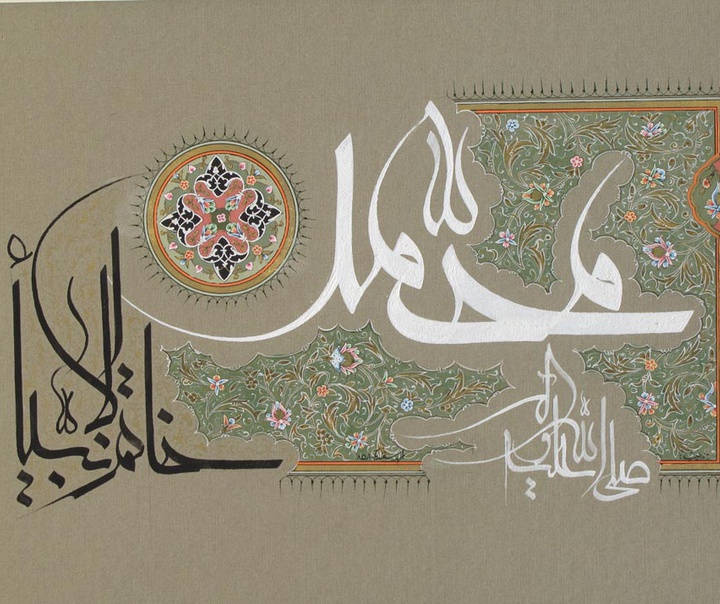 محمد
صلی الله علیه و آله
خاتم الانبیأ